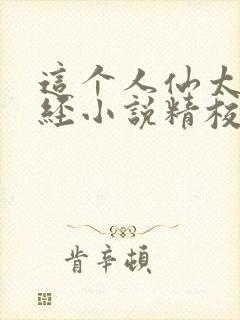 這个人仙太
經小說精校
肯辛頓